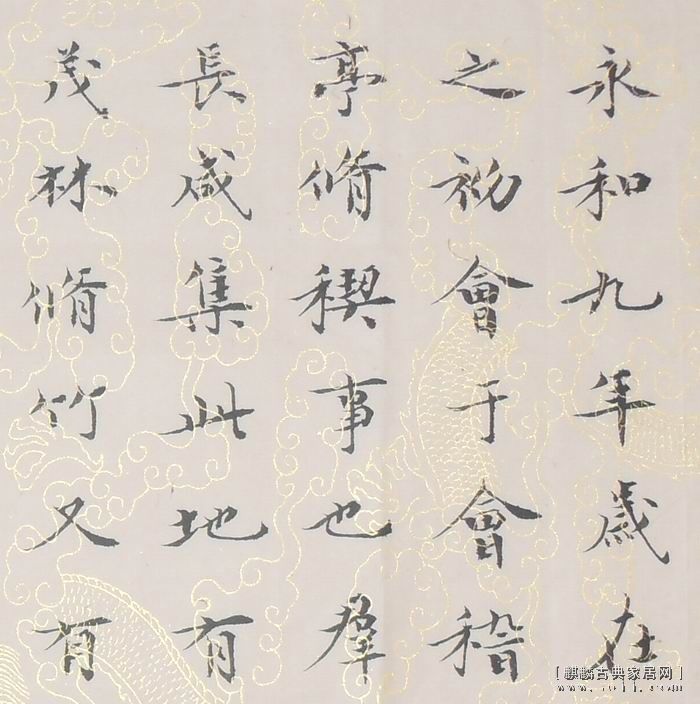 永和九年歲在
之初會于會稽
亭脩稧事也羣
長咸集此地有
茂林脩竹又有
[麒麟古典家居网]